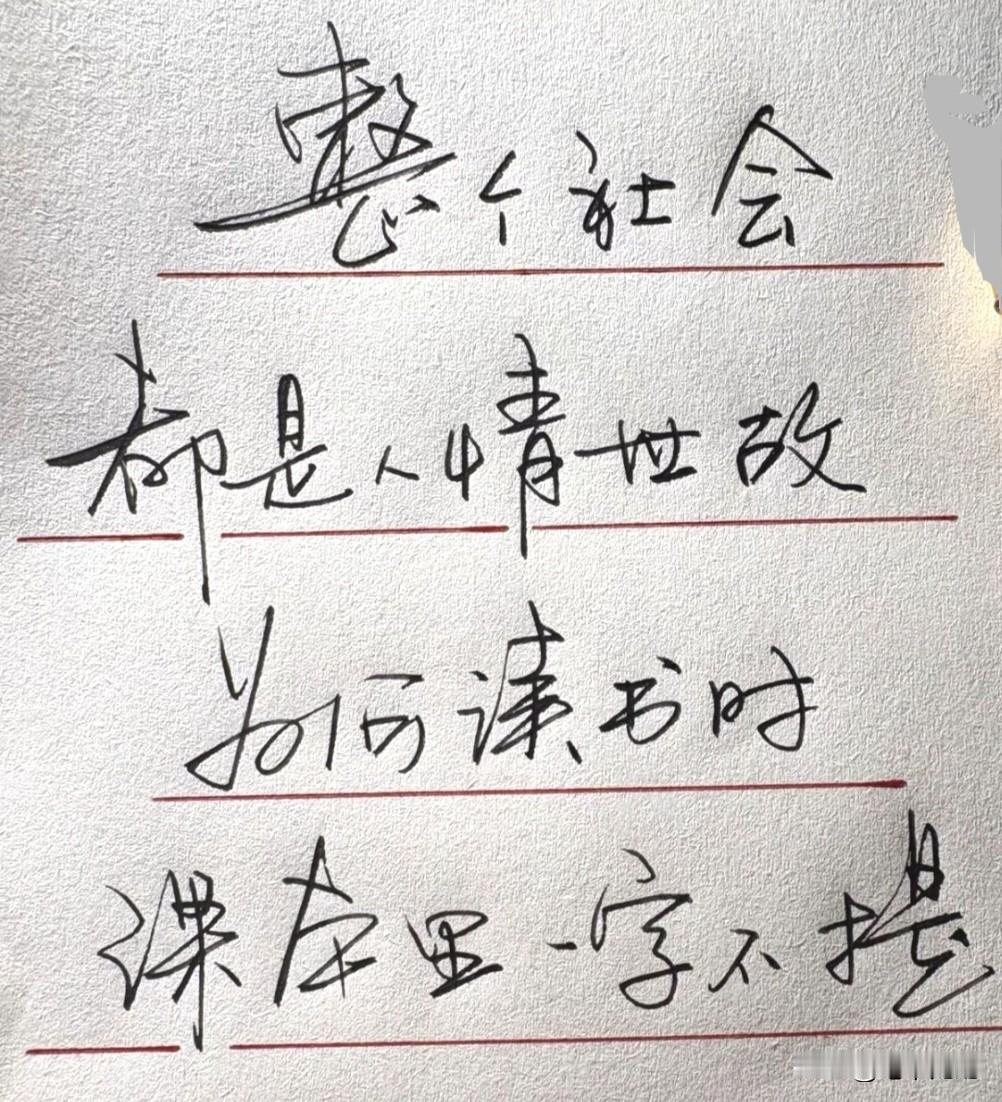 整个社会
都是人情世故
为何读书时
课本里一字不提